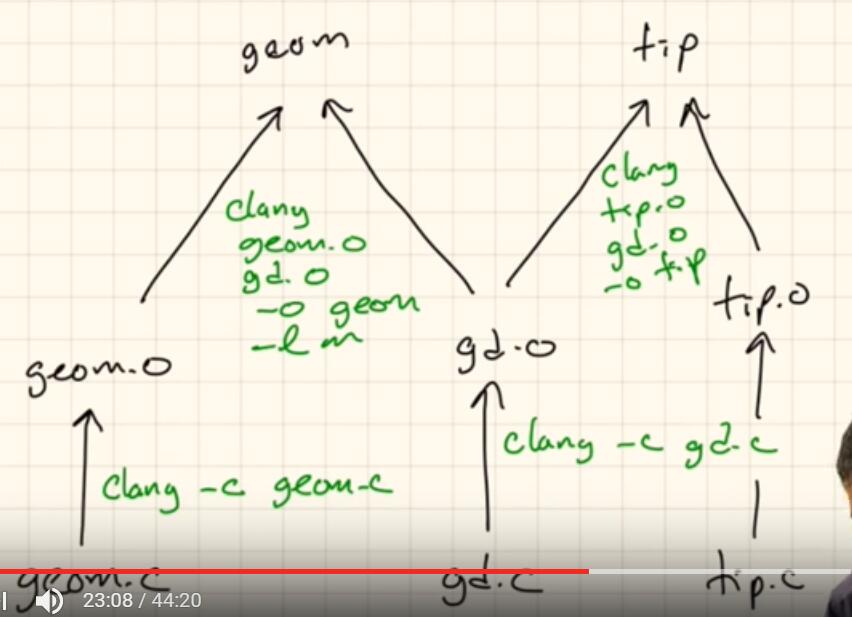 geom
tip
clang
geom.o
gd.o
-o geom
-lm
clang
tip.o
gd.o
-o tip
geom.o
gd.o
tip.o
clang -c geom.c
clang -c gd.c
geom.c
gd.c
tip.c
23:08 / 44:20